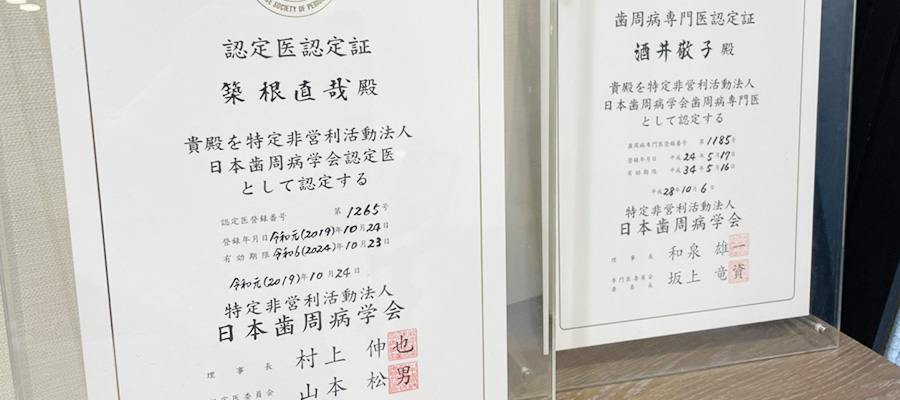 SE SOCIETY OF PERIO
認定医認定証
築根直哉殿
貴殿を特定非営利活動法人
日本歯周病学会認定医
として認定する
認定医登録番号 第1265号
登録年月日 令和元(2019)年10月24日
有効期限 令和6(2024)年10月23日
令和元(2019)年10月24日
特定非営利活動法人
日本歯周病学会
理事長 村上伸也
定医委員会 山本松男
歯周病専門医認定証
酒井敬子殿
貴殿を特定非営利活動法人
日本歯周病学会歯周病専門医
として認定する
歯周病専門医登録番号 第1185号
登録年月日 平成24年5月17日
有効期限 平成34年5月16日
平成28年10月6日
特定非営利活動法人
日本歯周病学会
理事長 和泉雄一
専門医委員会
委員長 坂上竜資